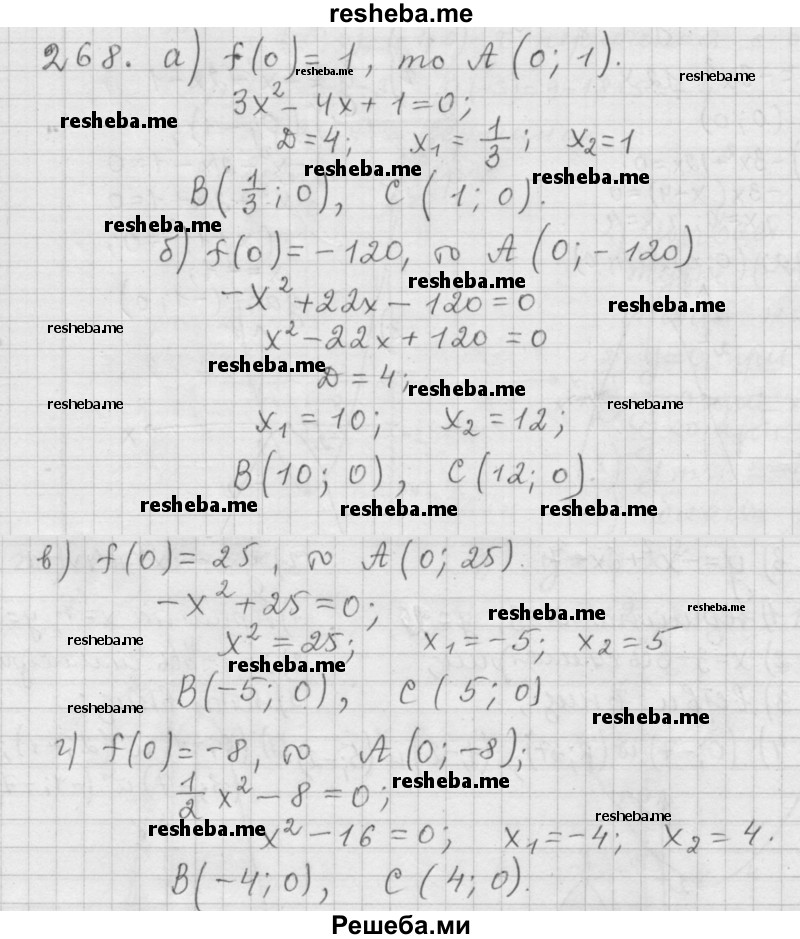 resheba.me
268. а) f(0) = 1, то A (0; 1).
resheba.me
resheba.me
3x² - 4x + 1 = 0;
resheba.me
D = 4; x₁ = 1/3; x₂ = 1
resheba.me
resheba.me
B(1/3; 0), C (1; 0).
resheba.me
б) f(0) = -120, то A (0; -120)
resheba.me
-x² + 22x - 120 = 0
resheba.me
resheba.me
x² - 22x + 120 = 0
resheba.me
D = 4;
resheba.me
resheba.me
resheba.me
x₁ = 10; x₂ = 12;
B(10; 0), C (12; 0).
resheba.me
resheba.me
resheba.me
в) f(0) = 25, то A (0; 25).
-x² + 25 = 0;
resheba.me
resheba.me
resheba.me
x² = 25; x₁ = -5; x₂ = 5
resheba.me
B(-5; 0), C (5; 0)
resheba.me
resheba.me
г) f(0) = -8, то A (0; -8);
resheba.me
1/2 x² - 8 = 0;
resheba.me
resheba.me
x² - 16 = 0; x₁ = -4; x₂ = 4.
B(-4; 0), C (4; 0).
Решеба.ми